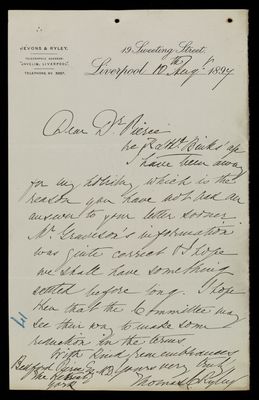 JEVONS & RYLEY.
TELEGRAPHIC ADDRESS:
TELEPHONE No. 5987.
19 Sweeting Street,
Liverpool 10th Aug. 1897
Dear Dr Pierce
I have been away
for my holiday which is the
reason you have not had an
answer to your letter sooner.
Mr Graveson's information
was quite correct & I hope
we shall have something
settled before long. I hope
then that the Committee may
see their way to make some
reduction in the terms
With kind remembrances
Bedford Pierce Esq M.D. yours very truly
The Retreat Thomas C Ryley
York